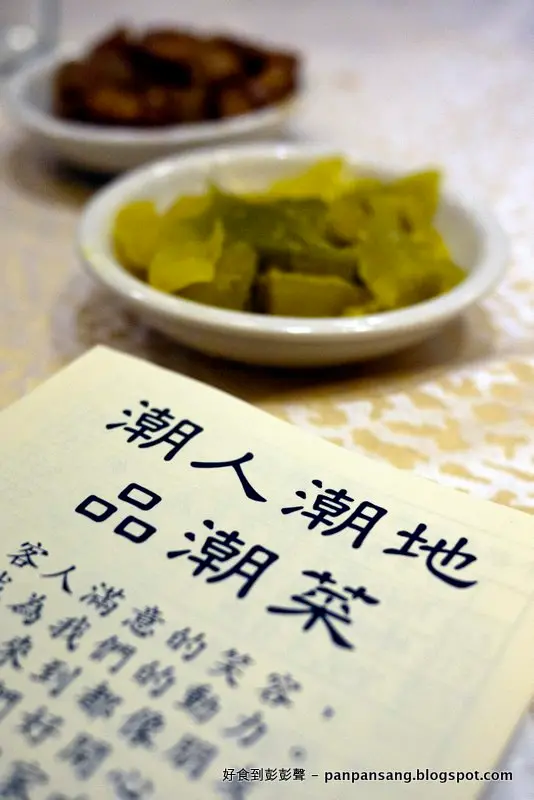 潮人潮地
品潮菜
客人滿意的笑容，
為我們的動力。
來到都像
們好開心
好食到彭彭聲 - panpansang.blogspot.com